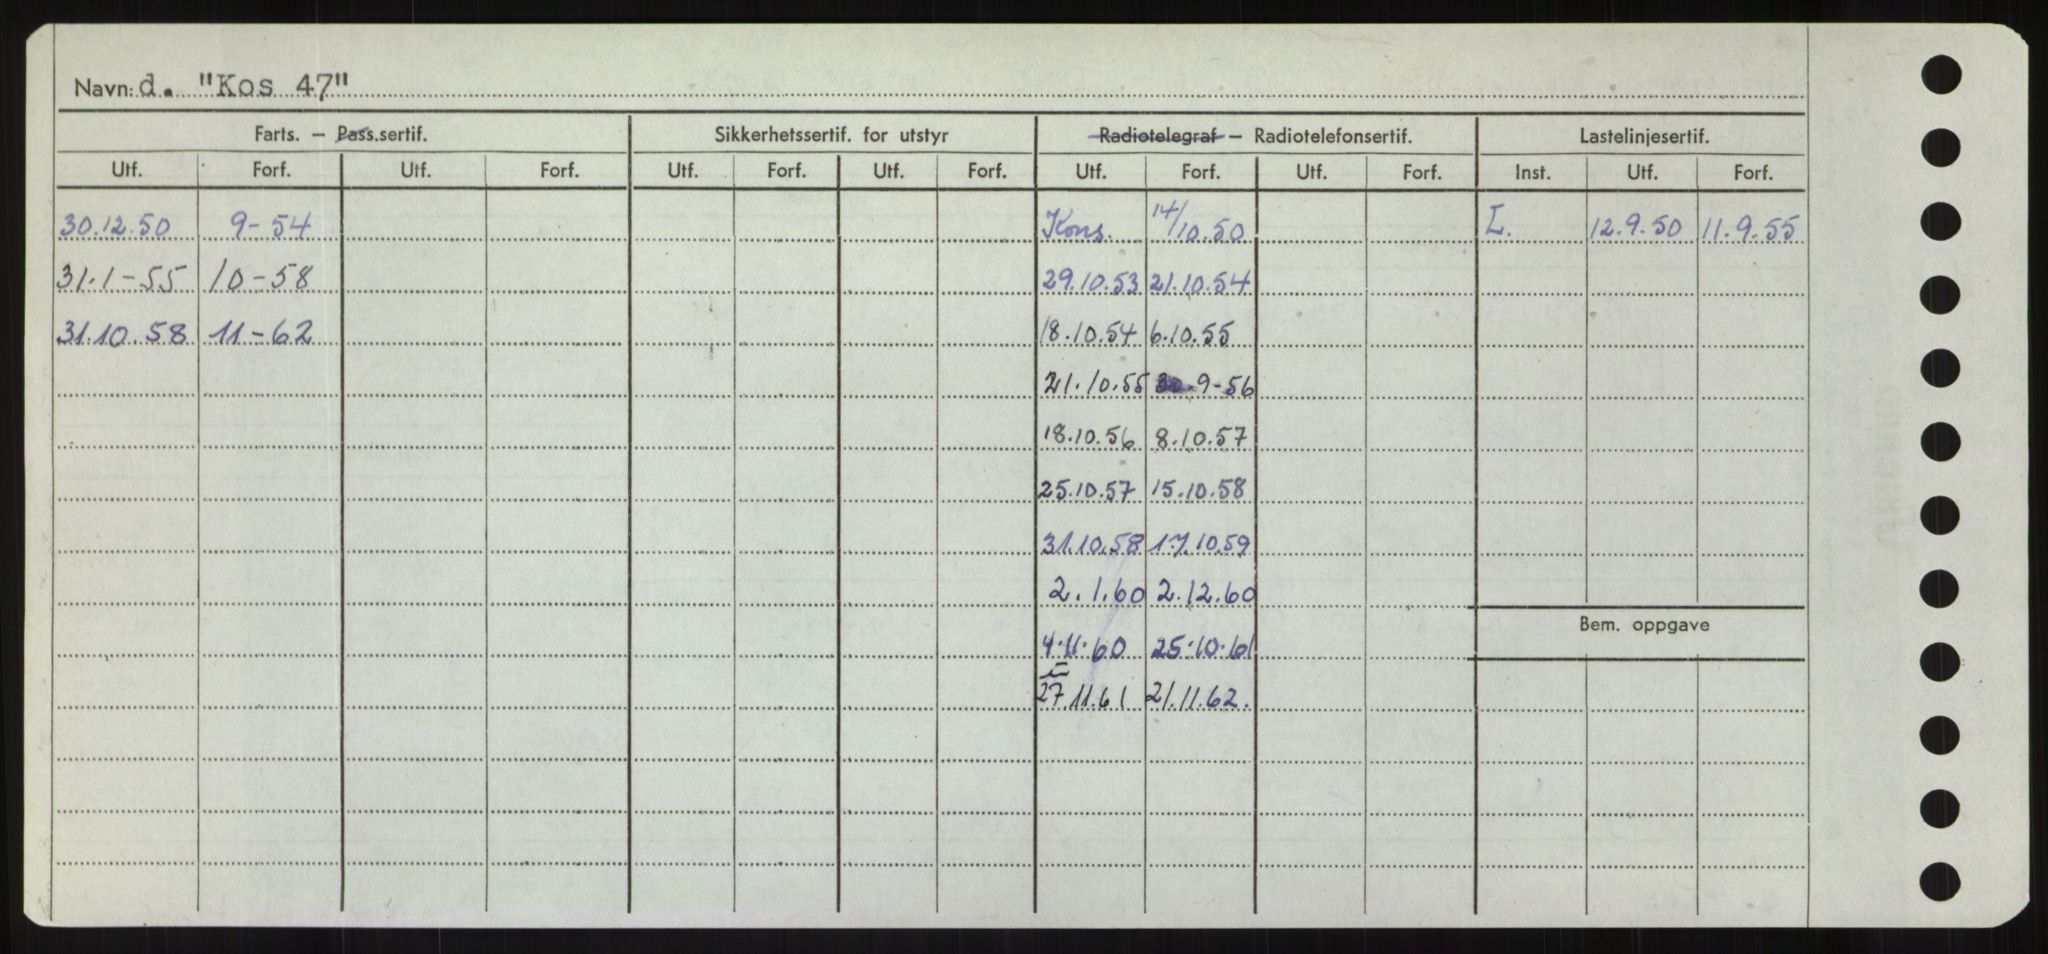 Navn: d. "Kos 47"
Farts. — Pass.sertif. Sikkerhetssertif. for utstyr Radiotelegraf — Radiotelefonsertif. Lastelinjesertif.
Utf. Forf. Utf. Forf. Utf. Forf. Utf. Forf. Utf. Forf. Utf. Forf. Inst. Utf. Forf.
30.12.50 9-54 Kons. 14/10.50 L. 12.9.50 11.9.55
31.1-55 10-58 29.10.53 21.10.54
31.10.58 11-62 18.10.54 6.10.55
21.10.55 30.9-56
18.10.56 8.10.57
25.10.57 15.10.58
31.10.58 17.10.59
2.1.60 2.12.60
Bem. oppgave
4.11.60 25.10.61
27.11.61 21.11.62.